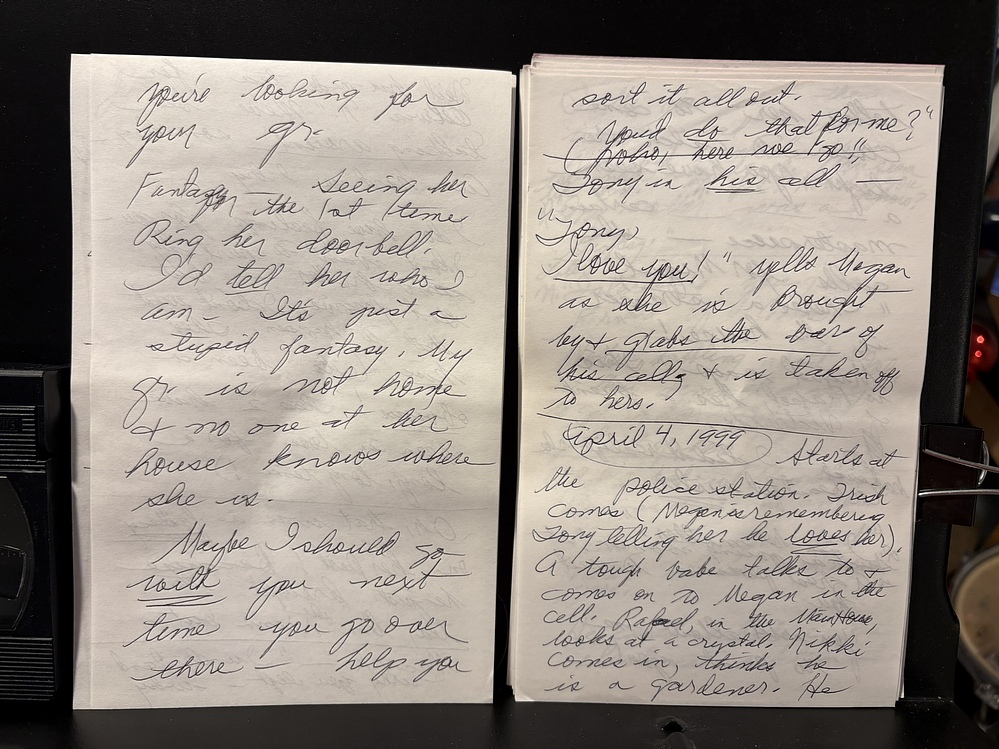 you're looking for
your gr.
Fantasy — Seeing her
for the 1st time
Ring her doorbell.
I'd tell her who I
am. It's just a
stupid fantasy. My
gr. is not home
& no one at her
house knows where
she is.
Maybe I should go
with you next
time you go over
there — help you
sort it all out.
You'd do that for me?"
(Hoho, here we go!!
Tony in his cell —
"Tony,
I love you!" yells Megan
as she is brought
by & grabs the bar of
his cell, & is taken off
to hers.
April 4, 1999 Starts at
the police station. Trish
comes (Megan is remembering
Tony telling her he loves her).
A tough babe talks to &
comes on to Megan in the
cell. Rafael, in the Main House,
looks at a crystal. Nikki
comes in, thinks he
is a gardener. He